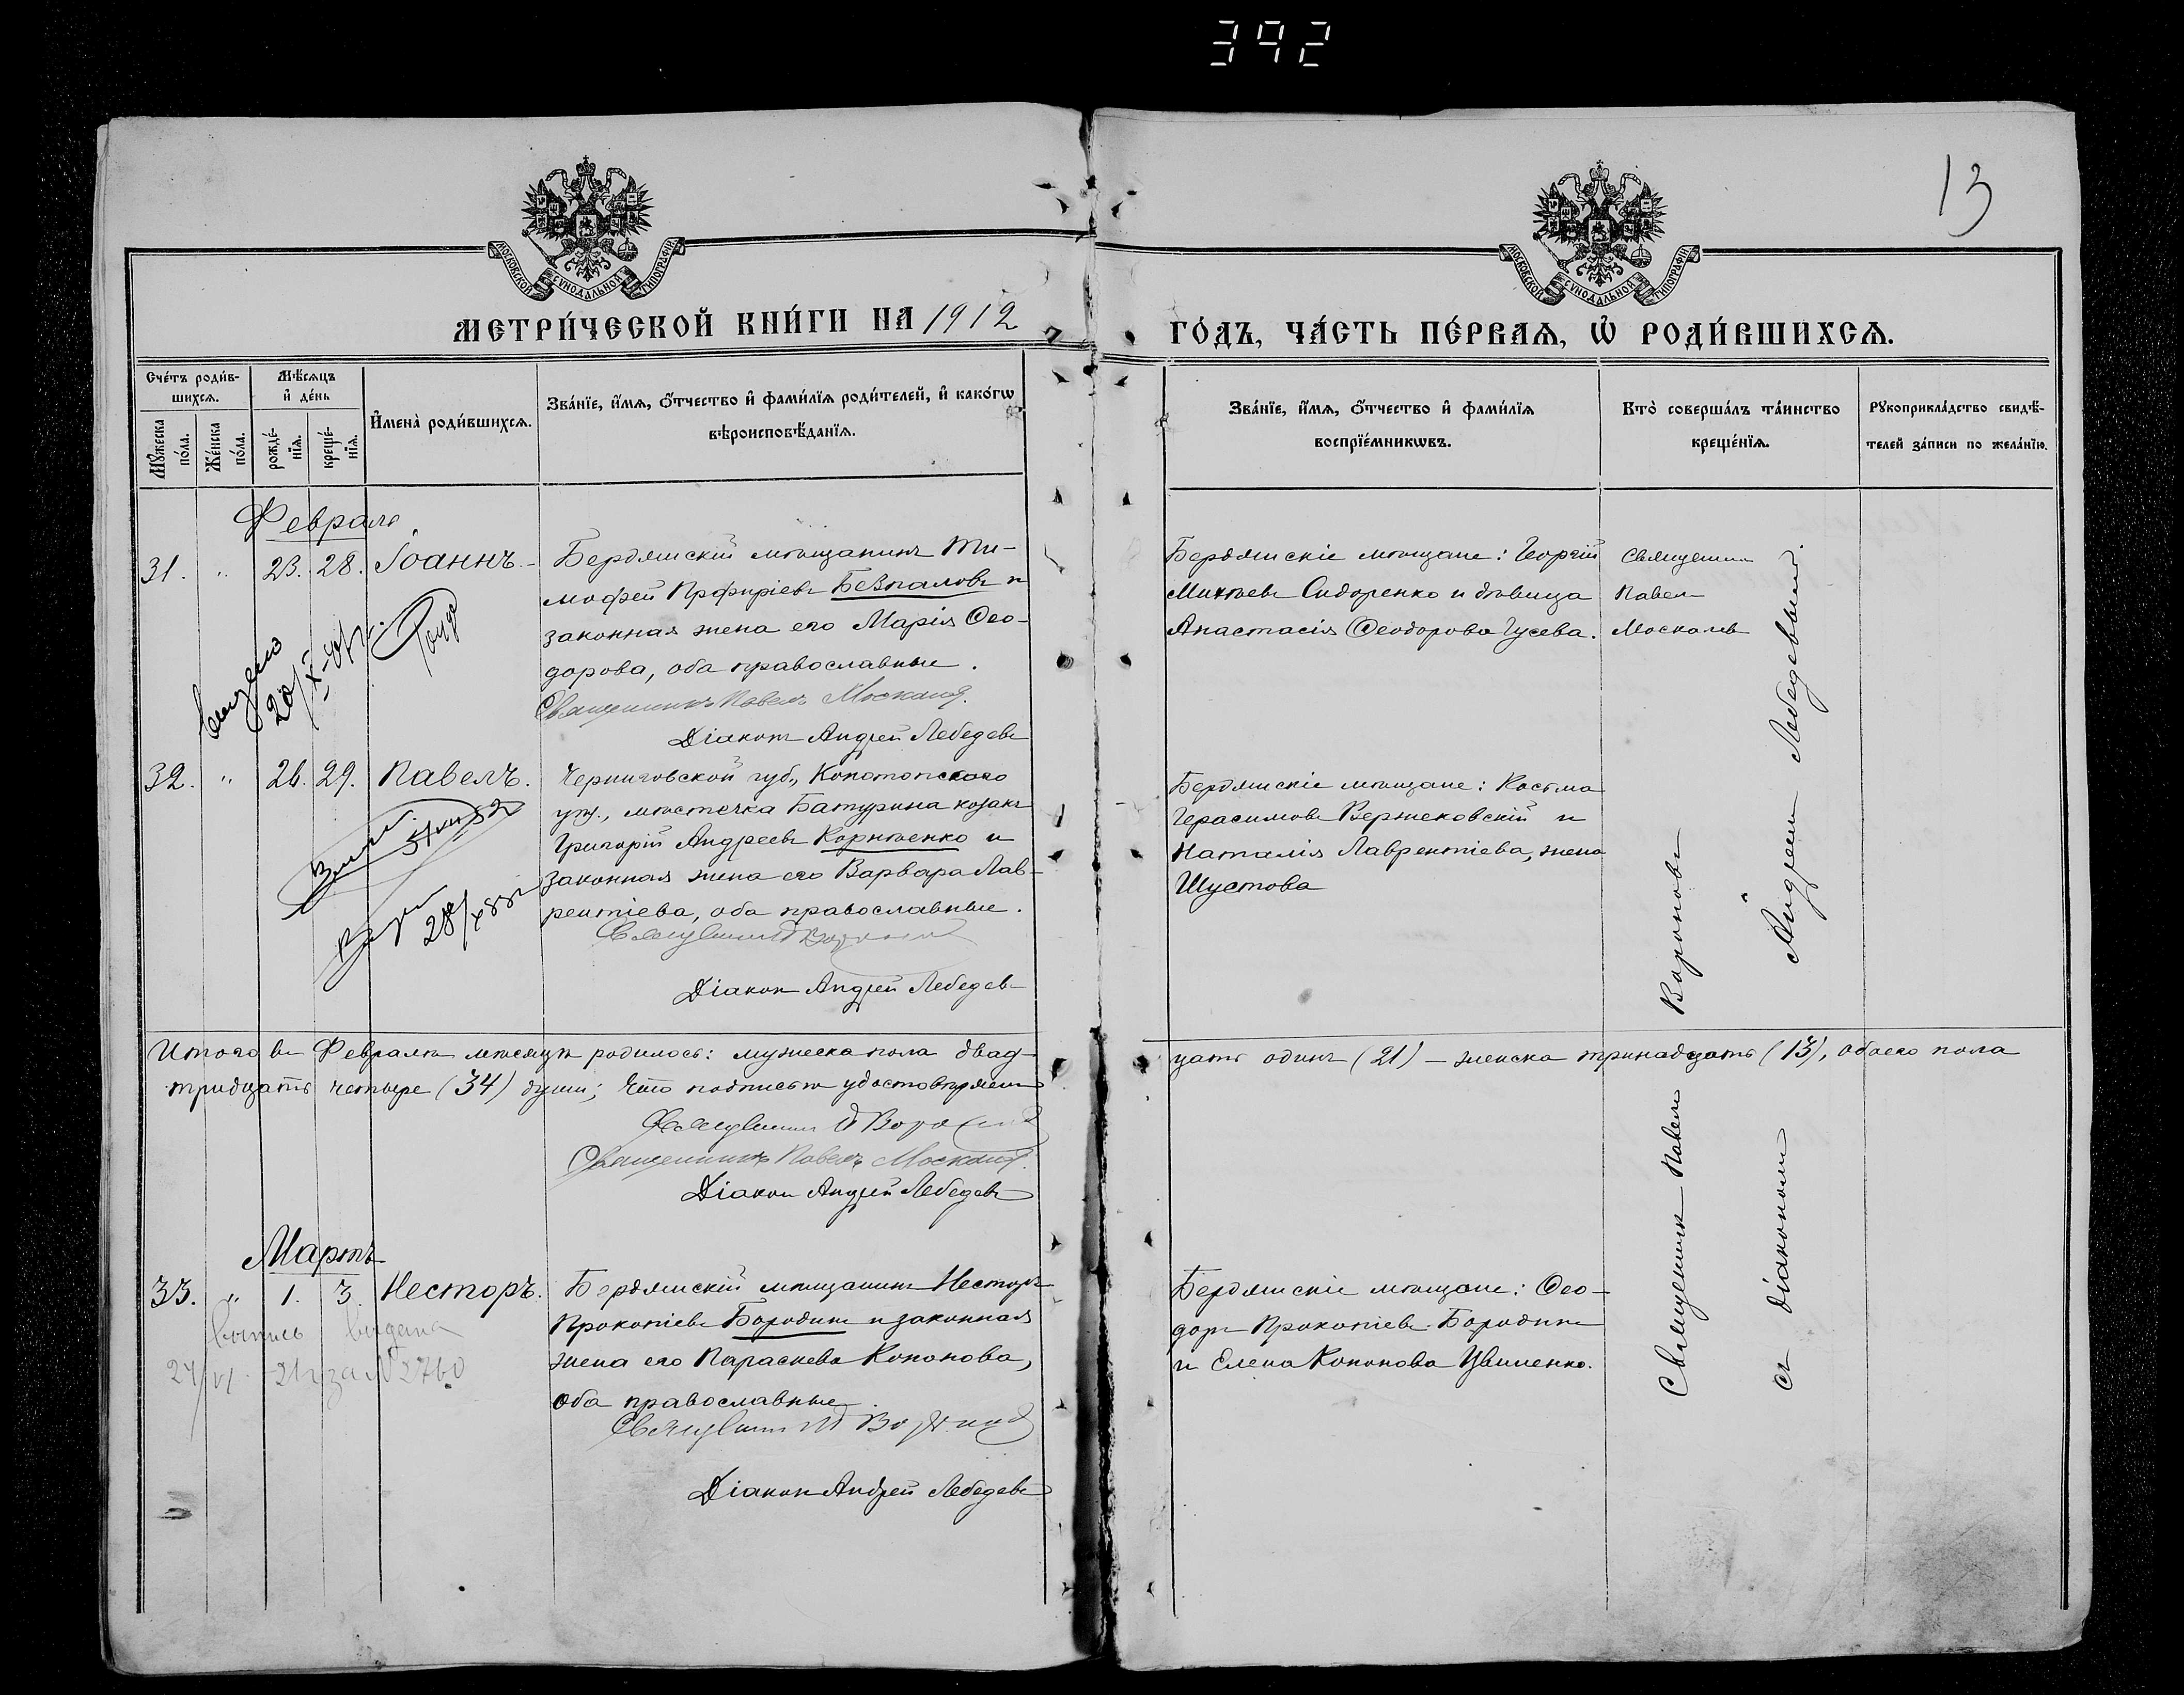 392
13
МОСКОВСКОЙ СѴНОДАЛЬНОЙ ТИПОГРАФІИ
МОСКОВСКОЙ СѴНОДАЛЬНОЙ ТИПОГРАФІИ
МЕТРИ́ЧЕСКОЙ КНИ́ГИ НА 1912
ГО́ДЪ, ЧА́СТЬ ПЕ́РВАѦ, Ѡ҆ РОДИ́ВШИХСѦ.
Сче́тъ роди́в-
шихсѧ.
Мꙋ́жеска по́ла.
Же́нска по́ла.
Мѣ́сѧцъ
и҆ де́нь
рожде́-
нїѧ.
креще́-
нїѧ.
И҆мена̀ роди́вшихсѧ.
Зва́нїе, и҆́мѧ, ѻ҆́тчество и҆ фами́лїѧ роди́телей, и҆ како́гѡ
вѣроисповѣ́данїѧ.
Зва́нїе, и҆́мѧ, ѻ҆́тчество и҆ фами́лїѧ
воспрїе́мникѡвъ.
Кто̀ соверша́лъ та́инство
креще́нїѧ.
Рꙋкоприкла́дство свидѣ́-
телей за́писи по жела́нїю.
Февраль
31. „ 23. 28. Іоаннъ.
Бердянскій мѣщанинъ Ти-
мофей Прфиріевъ Безпаловъ и
законная жена его Марія Ѳео-
дорова, оба православные.
Священникъ Павелъ Москалевъ.
Діаконъ Андрей Лебедевъ
Бердянскіе мѣщане: Георгій
Сидоренко и дѣвица
Анастасія Ѳеодорова Гусева.
Священникъ
Павелъ
Москалевъ
32. „ 26. 29. Павелъ.
Черниговской губ., Конотопского
уѣз., мѣстечка Батурина козакъ
Григорій Андреевъ Корнѣенко и
законная жена его Варвара Лав-
рентіева, оба православные.
Священникъ Вороновъ
Діаконъ Андрей Лебедевъ
28/X 55г
Бердянскіе мѣщане: Косьма
Герасимовъ Вержековскій и
Наталія Лаврентіева, жена
Шустова
Итого въ Февралѣ мѣсяцѣ родилось: мужеска пола двад-
цать одинъ (21) – женска тринадцать (13), обоего пола
тридцать четыре (34) души; Что подписью удостовѣряемъ
Священникъ Вороновъ
Священникъ Павелъ Москалевъ.
Діаконъ Андрей Лебедевъ
Мартъ
33. „ 1. 3. Несторъ.
Бердянскій мѣщанинъ Несторъ
Прокопіевъ Бородинъ и законная
жена его Параскева Кононова,
оба православные.
Священникъ Вороновъ
Діаконъ Андрей Лебедевъ
выпись выдана
за № 2760
Бердянскіе мѣщане: Ѳео-
доръ Прокопіевъ Бородинъ
и Елена Кононова Цвиленко.
Священникъ Павелъ Вороновъ
съ діакономъ Андреемъ Лебедевымъ